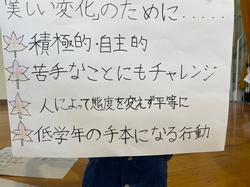 美しい変化のために.....
積極的・自主的
苦手なことにもチャレンジ
人によって態度を変えず平等に
低学年の手本になる行動